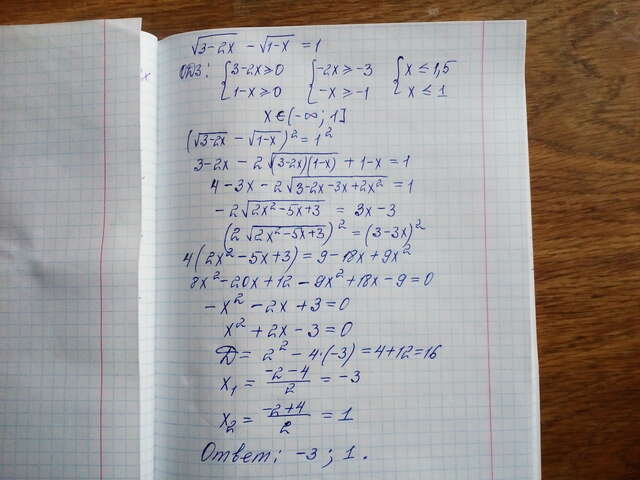 √(3-2x) - √(1-x) = 1
ОДЗ: { 3-2x ≥ 0 { -2x ≥ -3 { x ≤ 1,5
{ 1-x ≥ 0 { -x ≥ -1 { x ≤ 1
x ∈ (-∞; 1]
(√(3-2x) - √(1-x))² = 1²
3-2x - 2√((3-2x)(1-x)) + 1-x = 1
4 - 3x - 2√(3-2x-3x+2x²) = 1
-2√(2x²-5x+3) = 3x-3
(2√(2x²-5x+3))² = (3-3x)²
4(2x²-5x+3) = 9-18x+9x²
8x²-20x+12-9x²+18x-9=0
-x²-2x+3=0
x²+2x-3=0
D = 2²-4·(-3) = 4+12=16
x₁ = (-2-4)/2 = -3
x₂ = (-2+4)/2 = 1
Ответ: -3; 1.